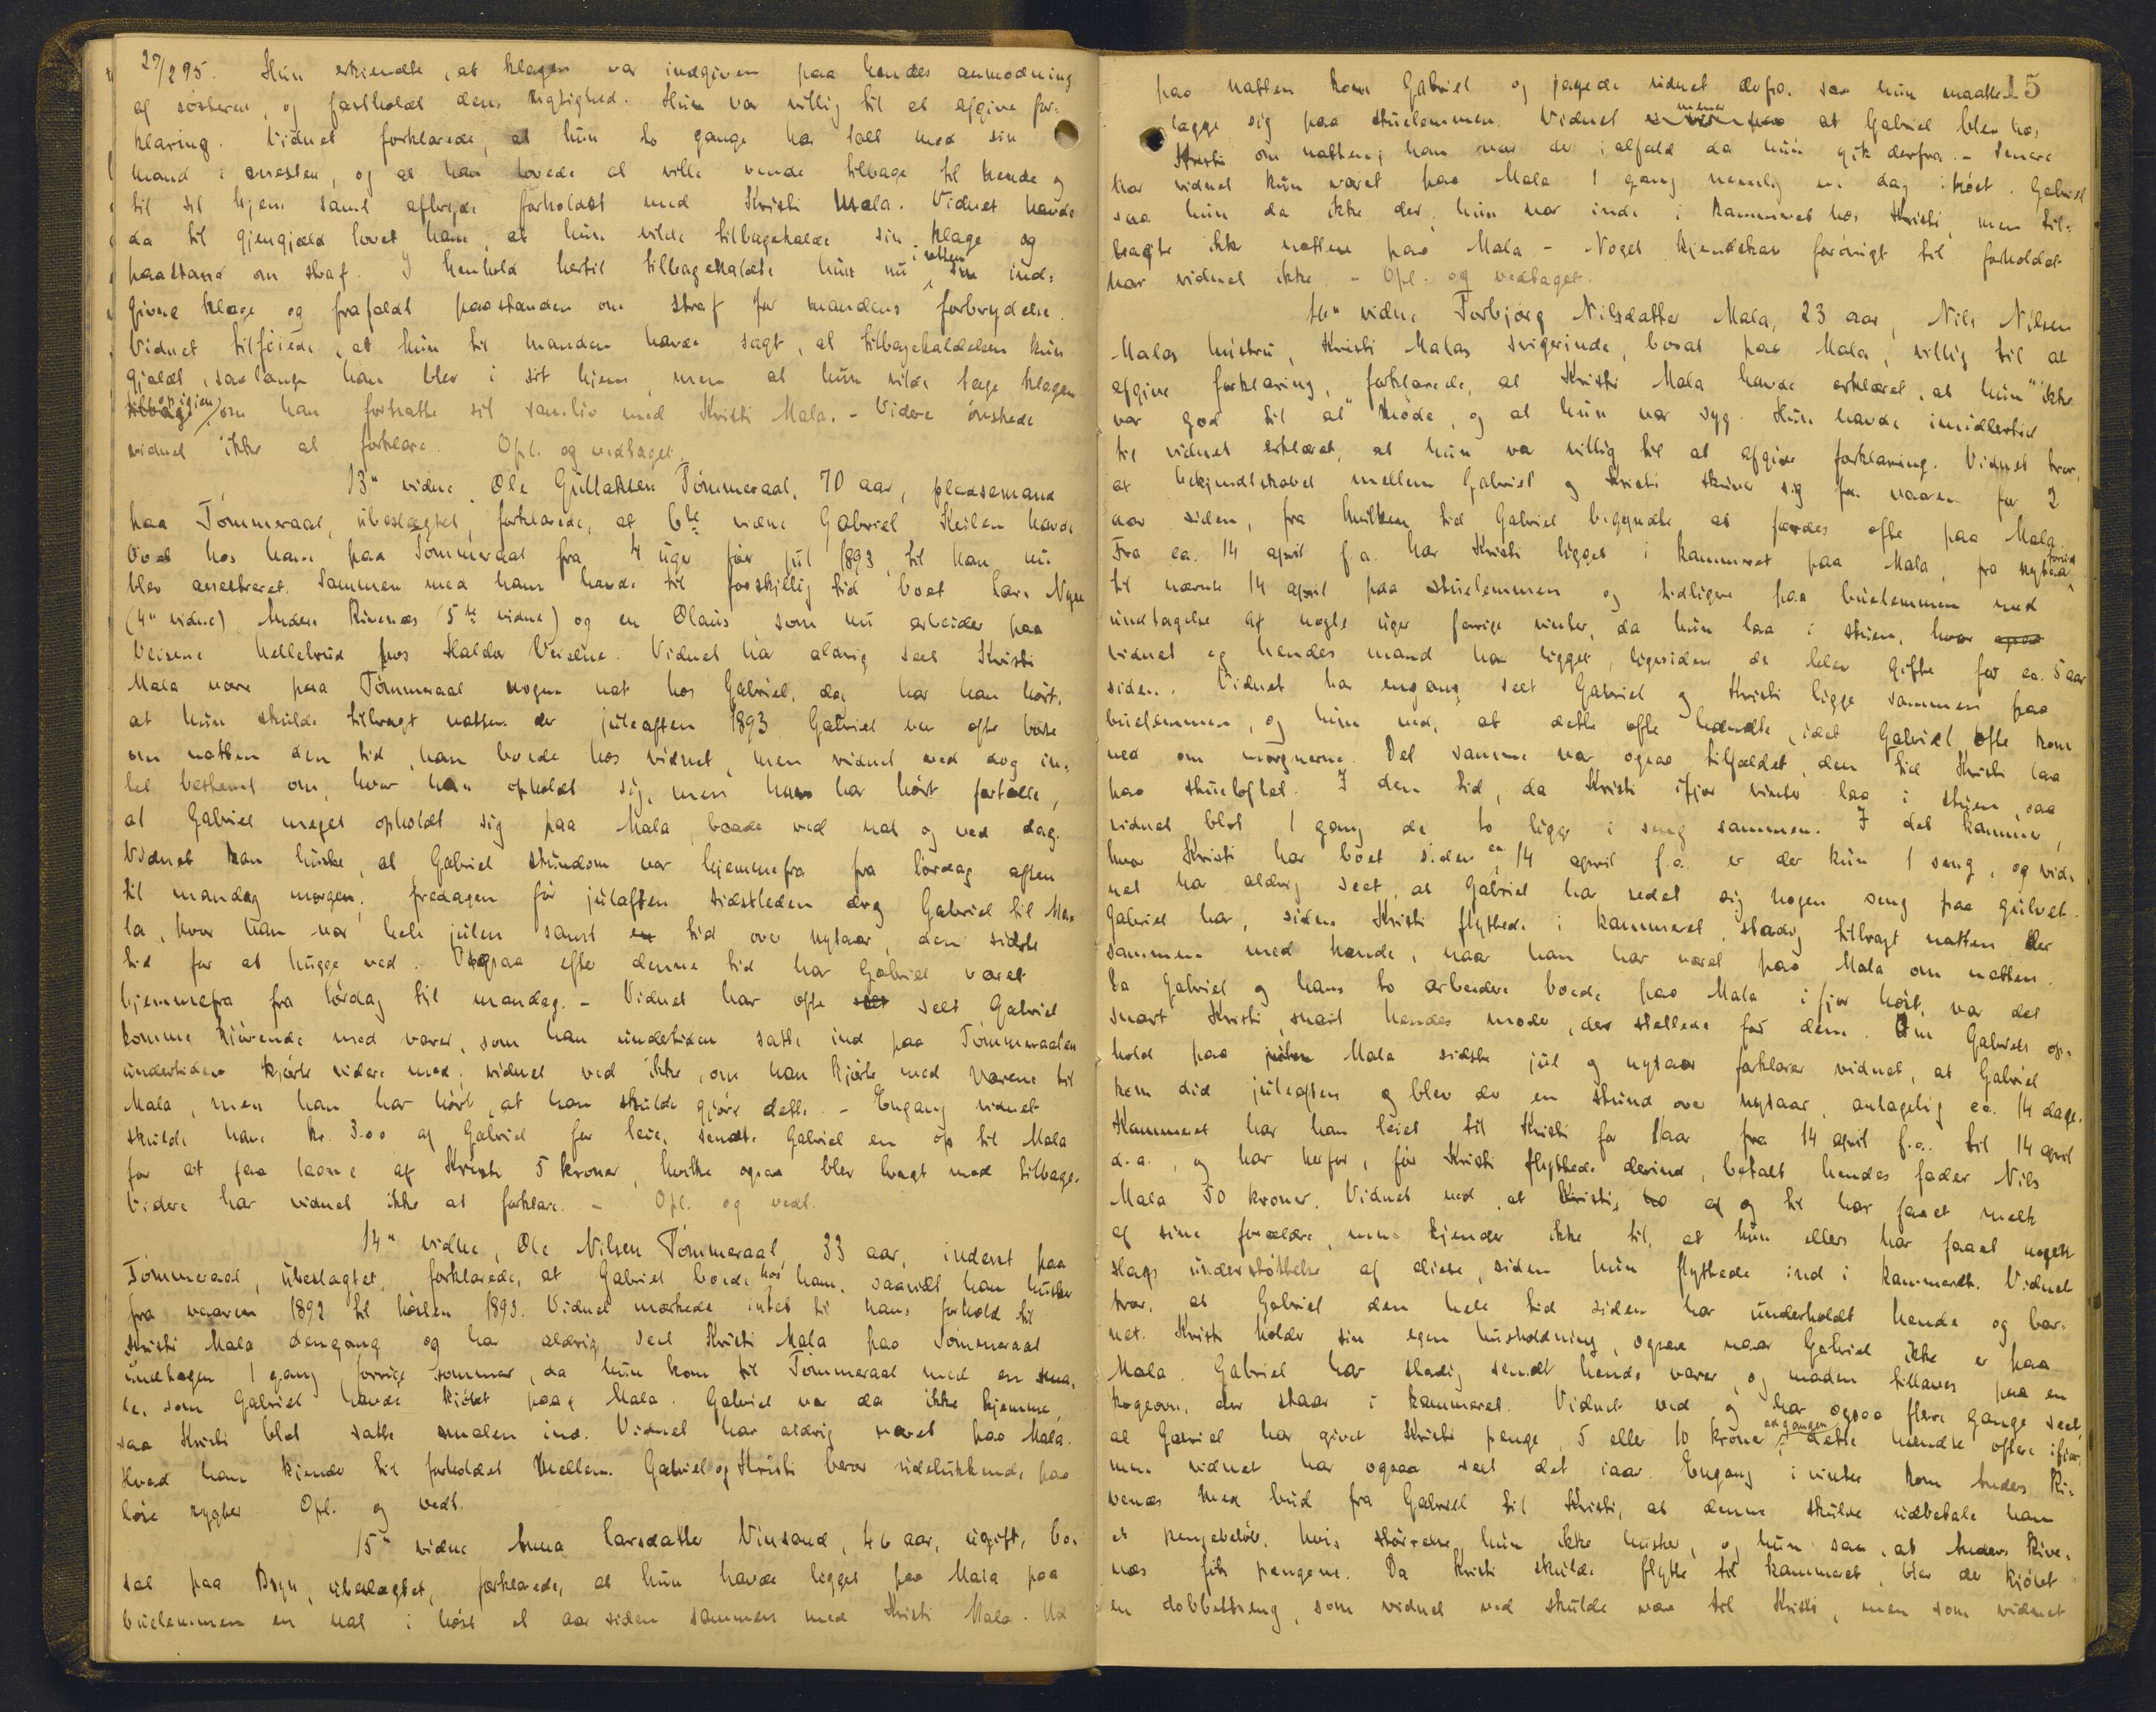 27/2 95. Hun erkiendte, at klagen var indgiven paa hendes anmodning
af søsteren, og fastholdt dens rigtighed. Hun var villig til at afgive for-
klaring. Vidnet forklarede, at hun to gange har talt med sin
mand i arresten, og at han lovede at ville vende tilbage til hende og
til sit hjem samt afbryde forholdet med Kristi Mala. Vidnet havde
da til gjengjæld lovet ham, at hun vilde tilbagekalde sin klage og
paastand om straf. I henhold hertil tilbagekaldte hun nu i retten sin ind-
givne klage og frafaldt paastanden om straf for mandens forbrydelse.
Vidnet tilføiede, at hun til manden havde sagt, at tilbagekaldelsen kun
gjaldt, saalænge han blev i sit hjem, men at hun vilde tage klagen
op igjen, om han fortsatte sit samliv med Kristi Mala. - Videre ønskede
vidnet ikke at forklare. Opl. og vedtaget.
13" vidne Ole Gullaksen Tømmeraal, 70 aar, pladsemand
paa Tømmeraal, ubeslægtet, forklarede, at 6te vidne Gabriel Keilen havde
boet hos ham paa Tømmeraal fra 4 uger før jul 1893 til han nu
blev arresteret. Sammen med ham havde til forskjellig tid boet Lars Nyre
(4" vidne) Anders Rivenæs (5te vidne) og en Olaus som nu arbeider paa
Veisene hellebrud hos Haldor Veisene. Vidnet har aldrig seet Kristi
Mala være paa Tømmeraal nogen nat hos Gabriel, dog har han hørt,
at hun skulde tilbragt natten der juleaften 1893. Gabriel var ofte borte
om natten den tid, han boede hos vidnet, men vidnet ved dog in-
tet bestemt om, hvor han opholdt sig, men han har hørt fortælle,
at Gabriel meget opholdt sig paa Mala, baade ved nat og ved dag.
Vidnet kan huske, at Gabriel stundom var hjemmefra fra lørdag aften
til mandag morgen; fredagen før julaften sidstleden drog Gabriel til Ma-
la, hvor han var hele julen samt en tid over nytaar, den sidste
tid for at hugge ved. Ogsaa efter denne tid har Gabriel været
hjemmefra fra lørdag til mandag. - Vidnet har ofte seet Gabriel
komme kjørende med varer, som han undertiden satte ind paa Tømmeraalen
undertiden kjørte videre med; vidnet ved ikke, om han kjørte med varene til
Mala, men han har hørt, at han skulde gjøre dette. - Engang vidnet
skulde have kr. 3.00 af Gabriel for leie, sendte Gabriel en op til Mala
for at faa laane af Kristi 5 kroner, hvilke ogsaa blev bragt med tilbage.
Videre har vidnet ikke at forklare. - Opl. og vedt.
14" vidne, Ole Nilsen Tømmeraal, 33 aar, inderst paa
Tømmeraal, ubeslægtet, forklarede, at Gabriel boede hos ham, saavidt han husker
fra vaaren 1892 til høsten 1893. Vidnet mærkede intet til hans forhold til
Kristi Mala dengang og har aldrig seet Kristi Mala paa Tømmeraal
undtagen 1 gang forrige sommer, da hun kom til Tømmeraal med en sma-
le, som Gabriel havde kjøbt paa Mala. Gabriel var da ikke hjemme,
saa Kristi blot satte smalen ind. Vidnet har aldrig været paa Mala.
Hvad han kjender til forholdet mellem Gabriel og Kristi beror udelukkende paa
løse rygter. Opl. og vedt.
15" vidne Anna Larsdatter Vinsand, 46 aar, ugift, bo-
sat paa, ubeslægtet, forklarede, at hun havde ligget paa Mala paa
buelemmen en nat i høst et aar siden sammen med Kristi Mala. Ud
15
paa natten kom Gabriel og jagede vidnet derfra, saa hun maatte
lægge sig paa stuelemmen. Vidnet mener at Gabriel blev hos
Kristi om natten; han var der ialfald da hun gik derfra. - Senere
har vidnet kun været paa Mala 1 gang nemlig en dag ihøst. Gabriel
saa hun da ikke der, hun var inde i kammeret hos Kristi, men til-
bragte ikke natten paa Mala. - Noget kjendskab forøvrigt til forholdet
har vidnet ikke. - Opl. og vedtaget.
16" vidne Torbjørg Nilsdatter Mala, 23 aar, Nils Nilsen
Malas hustru, Kristi Malas svigerinde, bosat paa Mala, villig til at
afgive forklaring, forklarede, at Kristi Mala havde erklæret, at hun "ikke
var god til at" møde, og at hun var syg. Hun havde imidlertid
til vidnet erklæret, at hun var villig til at afgive forklaring. Vidnet tror,
at bekjendtskabet mellem Gabriel og Kristi skriver sig fra vaaren for 2
aar siden, fra hvilken tid Gabriel begyndte at færdes ofte paa Mala.
Fra ca. 14 april f.a. har Kristi ligget i kammeret paa Mala, fra nytaar forrud
til nævnte 14 april paa stuelemmen og tidligere paa buelemmen med
undtagelse af nogle uger forrige vinter, da hun laa i stuen, hvor
vidnet og hendes mand har ligget, ligesiden de blev gifte for ca. 5 aar
siden. Vidnet har engang seet Gabriel og Kristi ligge sammen paa
buelemmen, og hun ved, at dette ofte hændte, idet Gabriel ofte kom
ned om morgnerne. Det samme var ogsaa tilfældet den tid Kristi laa
paa stueloftet. I den tid, da Kristi ifjor vinter laa i stuen, saa
vidnet blot 1 gang de to ligge i seng sammen. I det kammer,
hvor Kristi har boet siden ca 14 april f.a. er der kun 1 seng, og vid-
net har aldrig seet, at Gabriel har redet sig nogen seng paa gulvet.
Gabriel har, siden Kristi flyttede i kammeret, stadig tilbragt natten der
sammen med hende, naar han har været paa Mala om natten.
Da Gabriel og hans to arbeidere boede paa Mala ifjor høst, var det
snart Kristi, snart hendes moder, der stellede for dem. Om Gabriels op-
hold paa Mala sidste jul og nytaar forklarer vidnet, at Gabriel
kom did juleaften og blev der en stund over nytaar, antagelig ca. 14 dage.
Kammeret har han leiet til Kristi for 1 aar fra 14 april f.a. til 14 april
d.a., og har herfor, før Kristi flyttede derind, betalt hendes fader Nils
Mala 50 kroner. Vidnet ved, at Kristi af og til har faaet melk
af sine forældre, men kjender ikke til, at hun ellers har faaet nogets
slags understøttelse af disse, siden hun flyttede ind i kammeret. Vidnet
tror, at Gabriel den hele tid siden har underholdt hende og bar-
net. Kristi holder sin egen husholdning, ogsaa naar Gabriel ikke er paa
Mala. Gabriel har stadig sendt hende varer, og maden tillaves paa en
kogeovn, der staar i kammeret. Vidnet ved og har ogsaa flere gange seet,
at Gabriel har givet Kristi penge, 5 eller 10 kroner ad gangen; dette hændte oftere ifjor,
men vidnet har ogsaa seet det iaar. Engang i vinter kom Anders Ri-
venæs med bud fra Gabriel til Kristi, at denne skulde udbetale ham
et pengebeløb, hvis størrelse hun ikke husker, og hun saa, at Anders Rive-
næs fik pengene. Da Kristi skulde flytte til kammeret, blev der kjøbt
en dobbeltseng, som vidnet ved skulde være til Kristi, men som vidnet